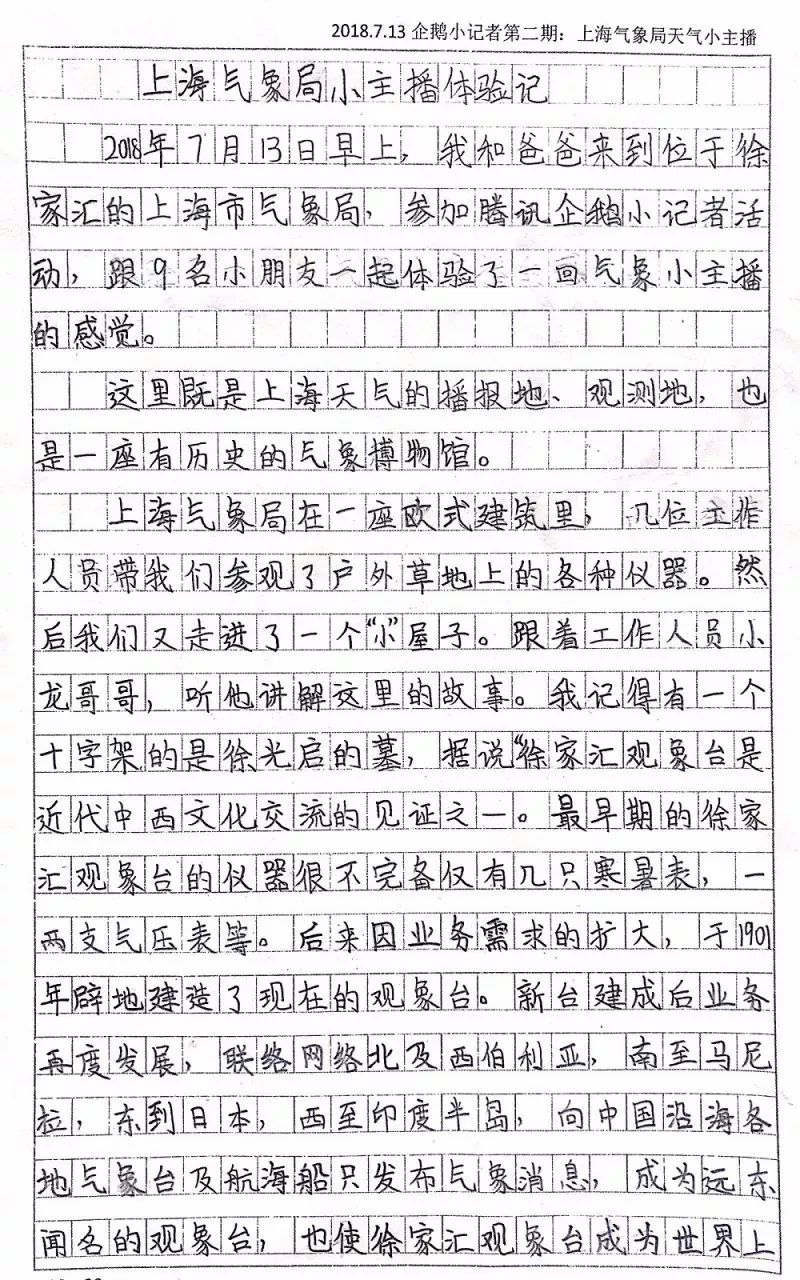 2018.7.13 企鹅小记者第二期：上海气象局天气小主播
上海气象局小主播体验记
2018年7月13日早上，我和爸爸来到位于徐
家汇的上海市气象局，参加腾讯企鹅小记者活
动，跟9名小朋友一起体验了一回气象小主播
的感觉。
这里既是上海天气的播报地、观测地，也
是一座有历史的气象博物馆。
上海气象局在一座欧式建筑里，几位工作
人员带我们参观了户外草地上的各种仪器。然
后我们又走进了一个“小”屋子。跟着工作人员小
龙哥哥，听他讲解这里的故事。我记得有一个
十字架的是徐光启的墓，据说“徐家汇观象台是
近代中西文化交流的见证之一。最早期的徐家
汇观象台的仪器很不完备仅有几只寒暑表，一
两支气压表等。后来因业务需求的扩大，于1901
年辟地建造了现在的观象台。新台建成后业务
再度发展，联络网络北及西伯利亚，南至马尼
拉，东到日本，西至印度半岛，向中国沿海各
地气象台及航海船只发布气象消息，成为远东
闻名的观象台，也使徐家汇观象台成为世界上